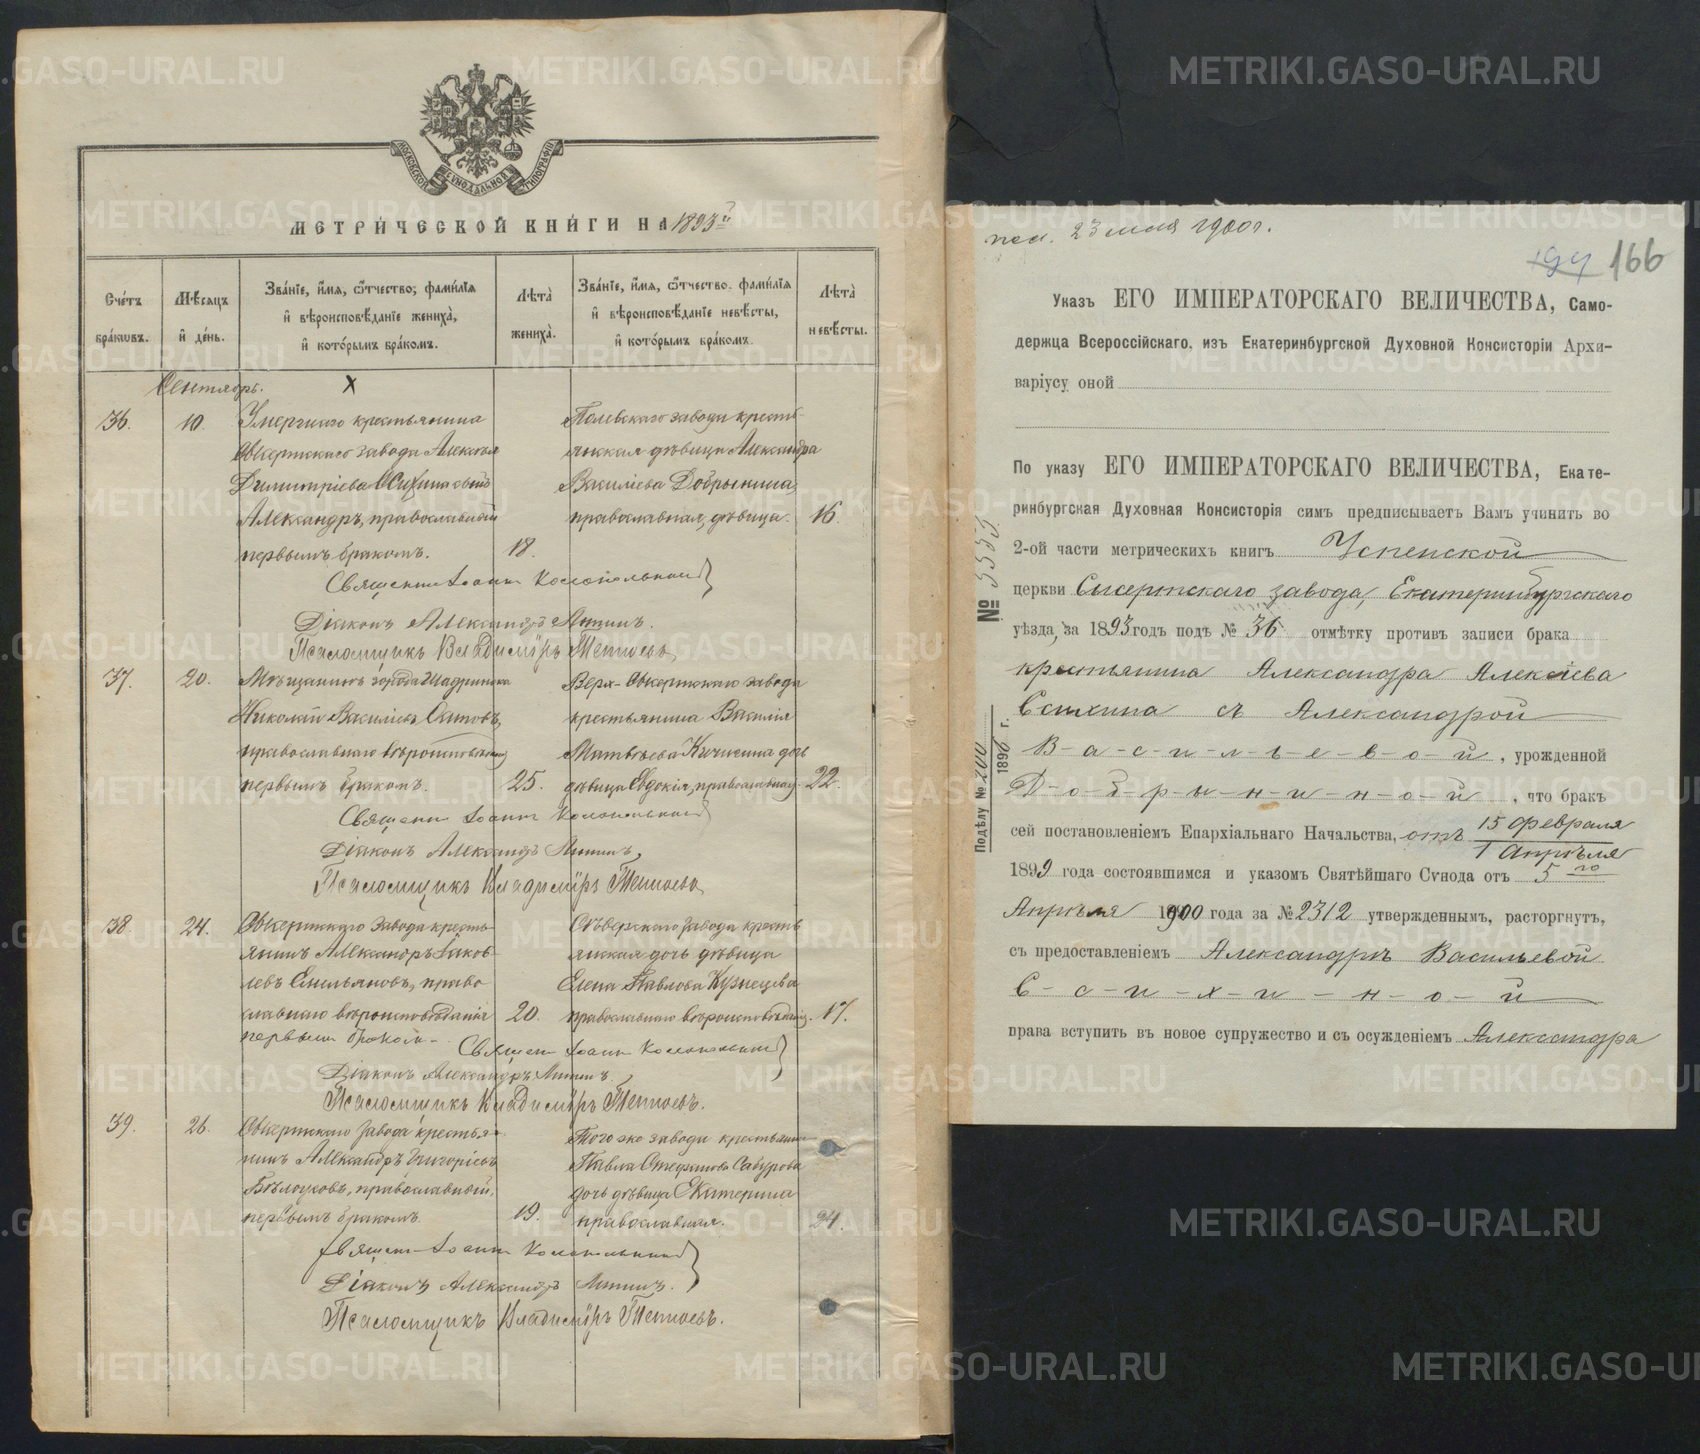 МОСКОВСКОЙ СѴНОДАЛЬНОЙ ТИПОГРАФІИ
МЕТРИ́ЧЕСКОЙ КНИ́ГИ НА 1893й
Сче́тъ бра́кѡвъ.
Мѣ́сяцъ и҆ де́нь.
Зва́нїе, и҆́мя, ѻ҆́тчество, фами́лїя
и҆ вѣроисповѣ́данїе жениха̀,
и҆ кото́рымъ бра́комъ.
Лѣ́та̀ жениха̀.
Зва́нїе, и҆́мя, ѻ҆́тчество. фами́лїя
и҆ вѣроисповѣ́данїе невѣ́сты,
и҆ кото́рымъ бра́комъ.
Лѣ́та̀ невѣ́сты.
Сентябрь. X
36. 10.
Умершаго крестьянина
Сысертскаго завода Алексѣя
Димитріева Сысихина сынъ
Александръ, православный
первымъ бракомъ. 18.
Полевскаго завода кресть-
янская дѣвица Александра
Василіева Добрынина,
православная, дѣвица. 16.
Священникъ Іоаннъ
Діаконъ Александръ
Псаломщикъ Владиміръ
37. 20.
Мѣщанинъ города Шадринска
Николай Василіевъ Осиповъ,
православнаго вѣроисповѣданія
первымъ бракомъ. 25.
Верх-Сысертскаго завода
крестьянина Василія
Матвѣева Кичигина дочь
дѣвица Евдокія, православная 22.
Священникъ Іоаннъ
Діаконъ Александръ
Псаломщикъ Владиміръ
38. 24.
Сысертскаго Завода кресть-
янинъ Александръ Іаков-
левъ Емельяновъ, право
славнаго вѣроисповѣданія 20.
первымъ бракомъ.
Сѣверскаго Завода кресть
янская дочь дѣвица
Елена Павлова Кузнецова
православнаго вѣроисповѣданія. 17.
Священникъ Іоаннъ
Діаконъ Александръ
Псаломщикъ Владиміръ
39. 26.
Сысертскаго Завода крестья-
нинъ Александръ Григорьевъ
Бѣлоусовъ, православный,
первымъ бракомъ. 19.
Того же завода крестьянина
Павла Стефанова Сабурова
дочь дѣвица Екатерина
православная. 24.
Священникъ Іоаннъ
Діаконъ Александръ
Псаломщикъ Владиміръ
пол. 23 мая 1900 г.
194 166
Указъ ЕГО ИМПЕРАТОРСКАГО ВЕЛИЧЕСТВА, Само-
держца Всероссійскаго, изъ Екатеринбургской Духовной Консисторіи Архи-
варіусу оной
По указу ЕГО ИМПЕРАТОРСКАГО ВЕЛИЧЕСТВА, Екате-
ринбургская Духовная Консисторія симъ предписываетъ Вамъ учинить во
2-ой части метрическихъ книгъ Успенской
церкви Сысертскаго завода, Екатеринбургскаго
уѣзда, за 1893 годъ подъ № 36 отмѣтку противъ записи брака
крестьянина Александра Алексѣева
Сысихина съ Александрой
В-а-с-и-л-ь-е-в-о-й, урожденной
Д-о-б-р-ы-н-и-н-о-й, что бракъ
сей постановленіемъ Епархіальнаго Начальства, отъ 15 февраля
1 Апрѣля
1899 года состоявшимся и указомъ Святѣйшаго Сѵнода отъ 5го
Апрѣля 1900 года за № 2312 утвержденнымъ, расторгнутъ,
съ предоставленіемъ Александрѣ Васильевой
права вступить въ новое супружество и съ осужденіемъ Александра
№ 5555
По дѣлу № 200
189 г.
METRIKI.GASO-URAL.RU